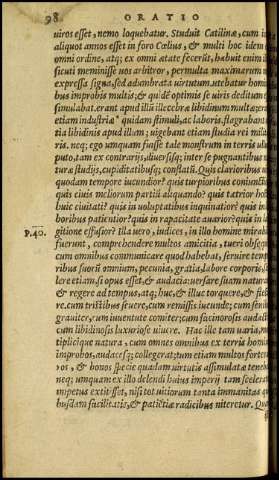 98 ORATIO
uiros esset, nemo loquebatur. Studuit Catilinæ, cum i
aliquot annos esset in foro Cœlius, & multi hoc idem
omni ordine, atq; ex omni ætate fecerũt, habuit enim il
sicuti meminisse uos arbitror, permulta maximarum
expressa signa, sed adumbrata uirtutum. utebatur homi
bus improbis multis; & quidẽ optimis se uiris deditum
simulabat. erant apud illũ illecebræ libidinum multæ: er
etiam industriæ quidam stimuli, ac laboris. flagrabant
tia libidinis apud illum; uigebant etiam studia rei milit
ris. neq; ego umquam fuisse tale monstrum in terris ullu
puto, tam ex contrarijs, diuersisq; inter se pugnantibus
turæ studijs, cupiditatibusq; constatũ. Quis clarioribus u
quodam tempore iucundior? quis turpioribus coniunctio
quis ciuis meliorum partiũ aliquando? quis tætrior ho
huic ciuitati? quis in uoluptatibus inquinatior? quis in
boribus patientior? quis in rapacitate auarior? quis in l
p. 40. gitione effusior? Illa uero, iudices, in illo homine mirab
fuerunt, comprehendere multos amicitia, tueri obseq
cum omnibus communicare quod habebat, seruire temp
ribus suorũ omnium, pecunia, gratia, labore corporis,
lere etiam, si opus esset, & audacia: uersare suam natura
& regere ad tempus, atq; huc, & illuc torquere, & fl
re. cum tristibus seuere, cum remissis iucunde; cum senib
grauiter, cum iuuentute comiter; cum facinorosis audac
cum libidinosis luxuriose uiuere. Hac ille tam uaria, m
tiplicique natura, cum omnes omnibus ex terris homin
improbos, audacesq; collegerat; tum etiam multos fortes
nos, & bonos specie quadam uirtutis assimulatæ tene
neq; umquam ex illo delendi huius imperij tam scelera
impetus extitisset, nisi tot uitiorum tanta immanitas q
busdam facilitatis, & patiẽtiæ radicibus niteretur.